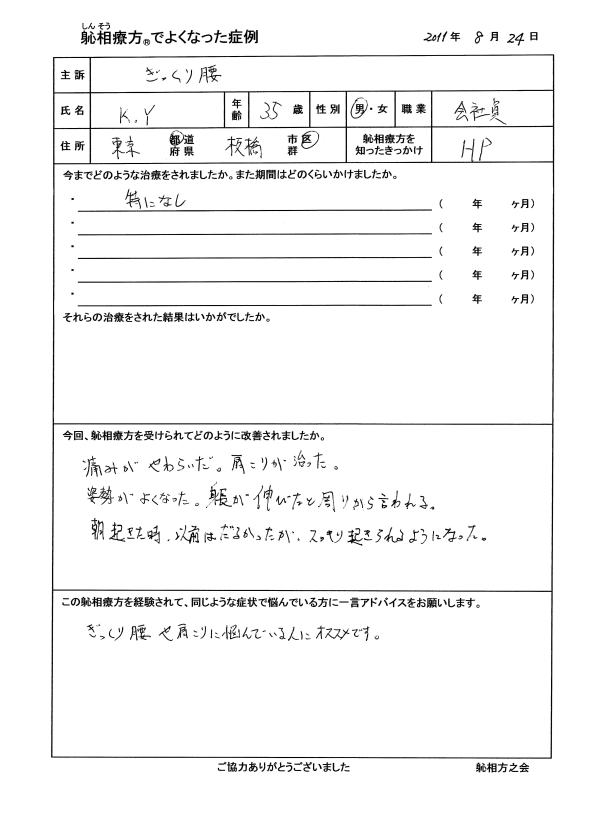 しんそう
躰相療方®でよくなった症例 2011年 8月 24日
主訴 ぎっくり腰
氏名 K.Y 年齢 35歳 性別 男・女 職業 会社員
住所 東京 都道府県 板橋 市区群 躰相療方を知ったきっかけ HP
今までどのような治療をされましたか。また期間はどのくらいかけましたか。
・ 特になし ( 年 ヶ月)
・ ( 年 ヶ月)
・ ( 年 ヶ月)
・ ( 年 ヶ月)
・ ( 年 ヶ月)
それらの治療をされた結果はいかがでしたか。
今回、躰相療方を受けられてどのように改善されましたか。
痛みがやわらいだ。肩こりが治った。
姿勢がよくなった。が伸びたと周りから言われる。
朝起きた時、以前はだるかったが、スッキリ起きられるようになった。
この躰相療方を経験されて、同じような症状で悩んでいる方に一言アドバイスをお願いします。
ぎっくり腰や肩こりに悩んでいる人にオススメです。
ご協力ありがとうございました 躰相方之会